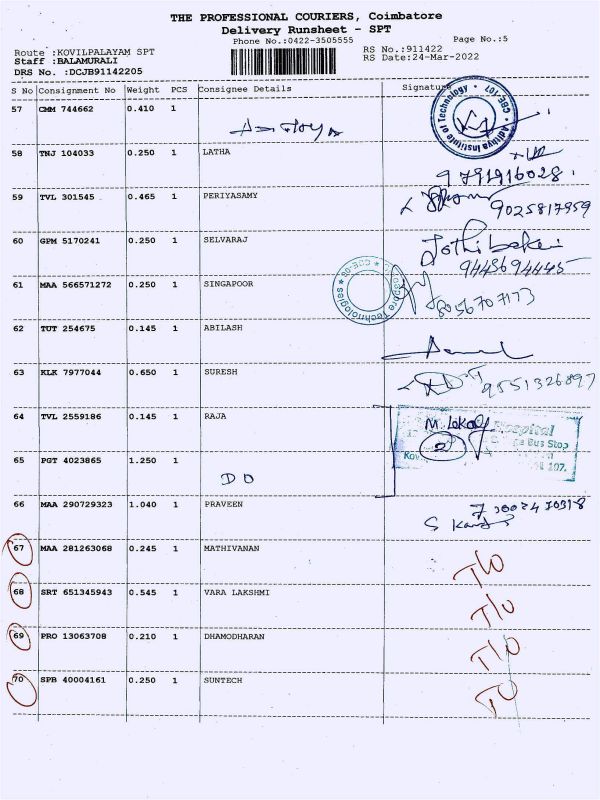 THE PROFESSIONAL COURIERS, Coimbatore
Delivery Runsheet - SPT
Phone No.:0422-3505555 Page No.:5
Route :KOVILPALAYAM SPT RS No.:911422
Staff :BALAMURALI RS Date:24-Mar-2022
DRS No. :DCJB91142205
S No Consignment No Weight PCS Consignee Details Signature
57 CMM 744662 0.410 1
Aditya Institute of Technology CBE-107
58 TNJ 104033 0.250 1 LATHA
9791916028
59 TVL 301545 0.465 1 PERIYASAMY
9025817959
60 GPM 5170241 0.250 1 SELVARAJ
9443694445
61 MAA 566571272 0.250 1 SINGAPOOR
Technologies CBE-08
8056707173
62 TUT 254675 0.145 1 ABILASH
63 KLK 7977044 0.650 1 SURESH
9551326897
64 TVL 2559186 0.145 1 RAJA
Hospital
Bus Stop
107.
65 PGT 4023865 1.250 1
DO
66 MAA 290729323 1.040 1 PRAVEEN
67 MAA 281263068 0.245 1 MATHIVANAN
T/O
68 SRT 651345943 0.545 1 VARA LAKSHMI
T/O
69 PRO 13063708 0.210 1 DHAMODHARAN
T/O
70 SPB 40004161 0.250 1 SUNTECH
T/O